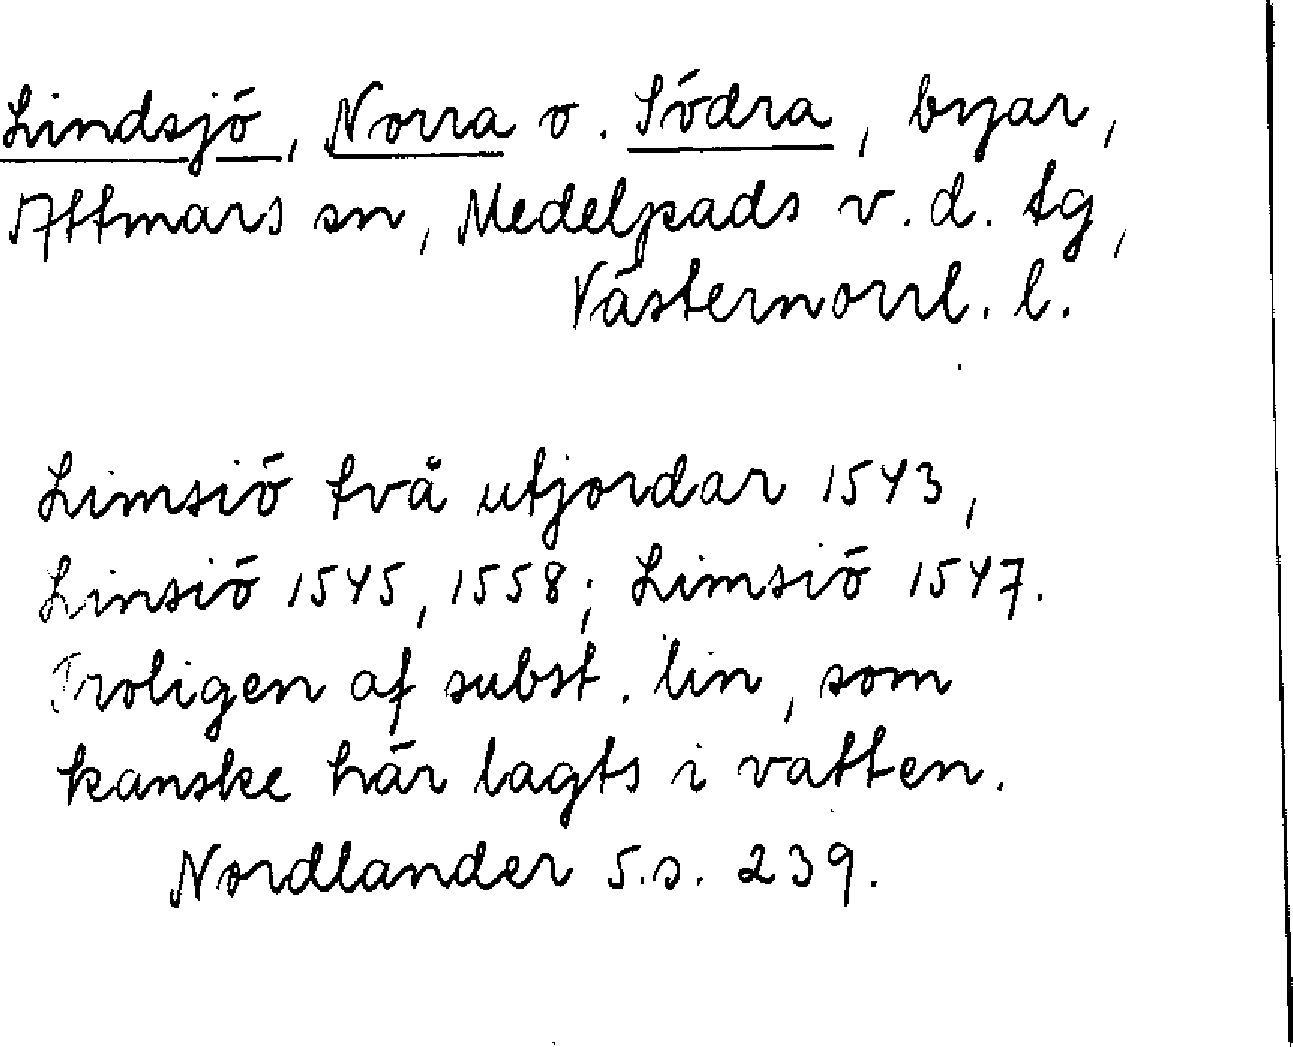 Lindsjö, Norra o. Södra, byar,
Attmars sn, Medelpads v. d. tg,
Västernorrl. l.
Limsiö två utjordar 1543,
Linsiö 1545, 1558; Limsiö 1547.
Troligen af subst. lin, som
kanske här lagts i vatten.
Nordlander 5.s. 239.